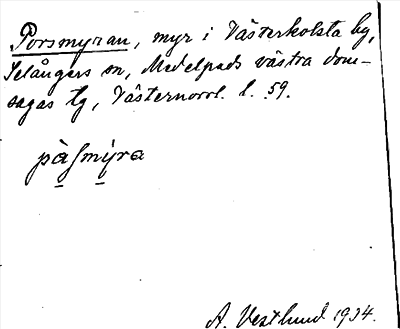 Porsmyran, myr i Västerkolsta by,
Selångers sn, Medelpads västra dom-
sagas tg, Västernorrl. l. 59.
pàʃmýra
A. Vestlund 1934.